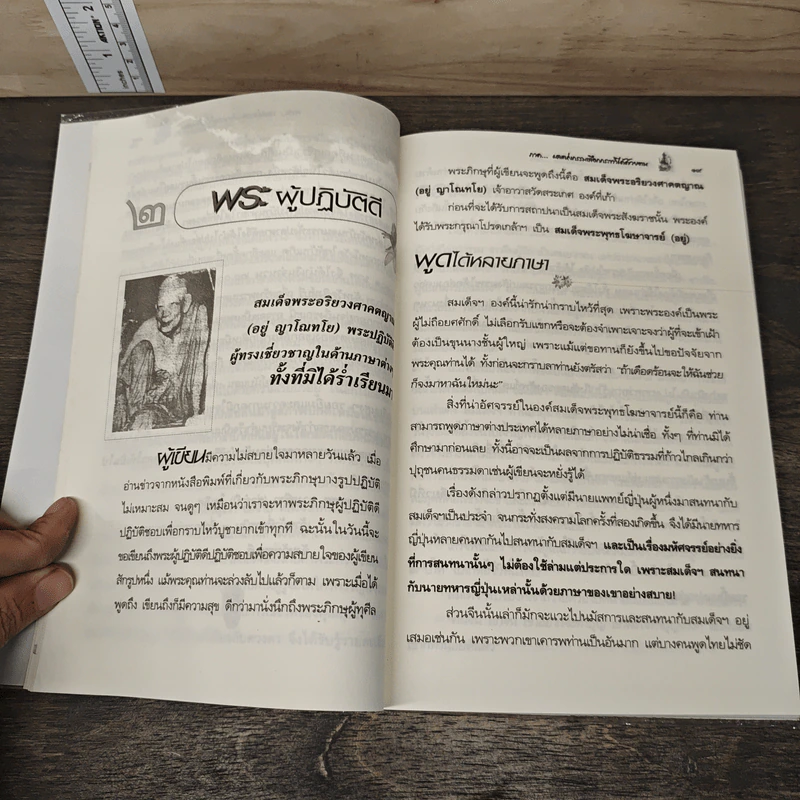 ๒
พระ ผู้ปฏิบัติดี
สมเด็จพระอริยวงศาคตญาณ
(อยู่ ญาโณทโย) พระปฏิบัติ
ผู้ทรงเชี่ยวชาญในด้านภาษาต่าง
ทั้งที่มิได้ร่ำเรียนมา
ผู้เขียนมีความไม่สบายใจมาหลายวันแล้ว เมื่อ
อ่านข่าวจากหนังสือพิมพ์ที่เกี่ยวกับพระภิกษุบางรูปปฏิบัติ
ไม่เหมาะสม จนดูๆ เหมือนว่าเราจะหาพระภิกษุผู้ปฏิบัติดี
ปฏิบัติชอบเพื่อกราบไหว้บูชายากเข้าทุกที ฉะนั้นในวันนี้จะ
ขอเขียนถึงพระผู้ปฏิบัติดีปฏิบัติชอบเพื่อความสบายใจของผู้เขียน
สักรูปหนึ่ง แม้พระคุณท่านจะล่วงลับไปแล้วก็ตาม เพราะเมื่อได้
พูดถึง เขียนถึงก็มีความสุข ดีกว่ามานั่งนึกถึงพระภิกษุผู้ทุศีล
๑๙
พระภิกษุที่ผู้เขียนจะพูดถึงนี้คือ สมเด็จพระอริยวงศาคตญาณ
(อยู่ ญาโณทโย) เจ้าอาวาสวัดสระเกศ องค์ที่เก้า
ก่อนที่จะได้รับการสถาปนาเป็นสมเด็จพระสังฆราชนั้น พระองค์
ได้รับพระกรุณาโปรดเกล้าฯ เป็น สมเด็จพระพุทธโฆษาจารย์ (อยู่)
พูดได้หลายภาษา
สมเด็จฯ องค์นี้น่ารักน่ากราบไหว้ที่สุด เพราะพระองค์เป็นพระ
ผู้ไม่ถือยศศักดิ์ ไม่เลือกรับแขกหรือจะต้องจำเพาะเจาะจงว่าผู้ที่จะเข้าเฝ้า
ต้องเป็นขุนนางชั้นผู้ใหญ่ เพราะแม้แต่ขอทานก็ยังขึ้นไปขอปัจจัยจาก
พระคุณท่านได้ ทั้งก่อนจะกราบลาท่านยังตรัสว่า "ถ้าเดือดร้อนจะให้ฉันช่วย
ก็จงมาหาฉันใหม่นะ"
สิ่งที่น่าอัศจรรย์ในองค์สมเด็จพระพุทธโฆษาจารย์นี้ก็คือ ท่าน
สามารถพูดภาษาต่างประเทศได้หลายภาษาอย่างไม่น่าเชื่อ ทั้งๆ ที่ท่านมิได้
ศึกษามาก่อนเลย ทั้งนี้อาจจะเป็นผลจากการปฏิบัติธรรมที่ก้าวไกลเกินกว่า
ปุถุชนคนธรรมดาเช่นผู้เขียนจะหยั่งรู้ได้
เรื่องดังกล่าวปรากฏตั้งแต่มีนายแพทย์ญี่ปุ่นผู้หนึ่งมาสนทนากับ
สมเด็จฯเป็นประจำ จนกระทั่งสงครามโลกครั้งที่สองเกิดขึ้น จึงได้มีนายทหาร
ญี่ปุ่นหลายคนพากันไปสนทนากับสมเด็จฯ และเป็นเรื่องมหัศจรรย์อย่างยิ่ง
ที่การสนทนานั้นๆ ไม่ต้องใช้ล่ามแต่ประการใด เพราะสมเด็จฯ สนทนา
กับนายทหารญี่ปุ่นเหล่านั้นด้วยภาษาของเขาอย่างสบาย!
ส่วนจีนนั้นเล่าก็มักจะแวะไปนมัสการและสนทนากับสมเด็จฯ อยู่
เสมอเช่นกัน เพราะพวกเขาเคารพท่านเป็นอันมาก แต่บางคนพูดไทยไม่ชัด